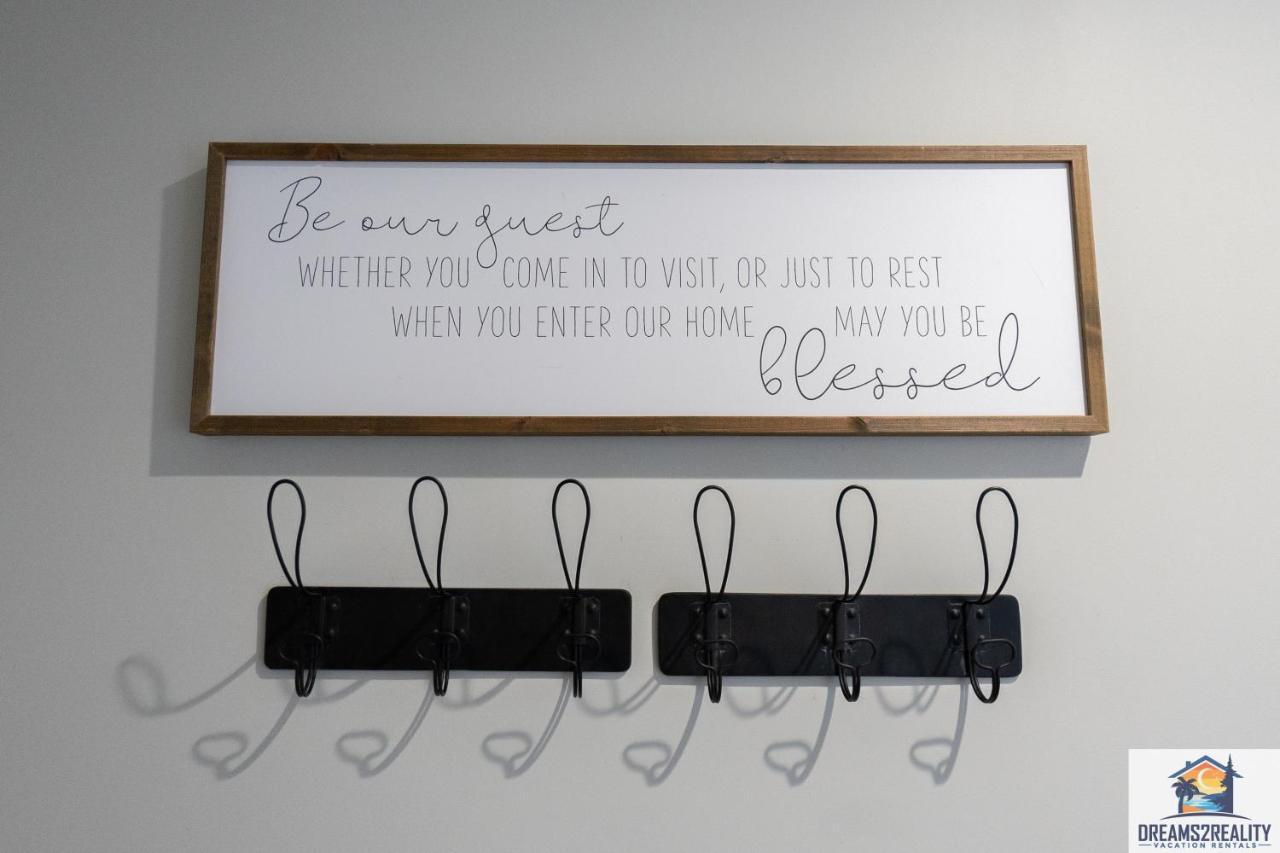 Be our guest
WHETHER YOU COME IN TO VISIT, OR JUST TO REST
WHEN YOU ENTER OUR HOME MAY YOU BE
blessed
DREAMS2REALITY
VACATION RENTALS